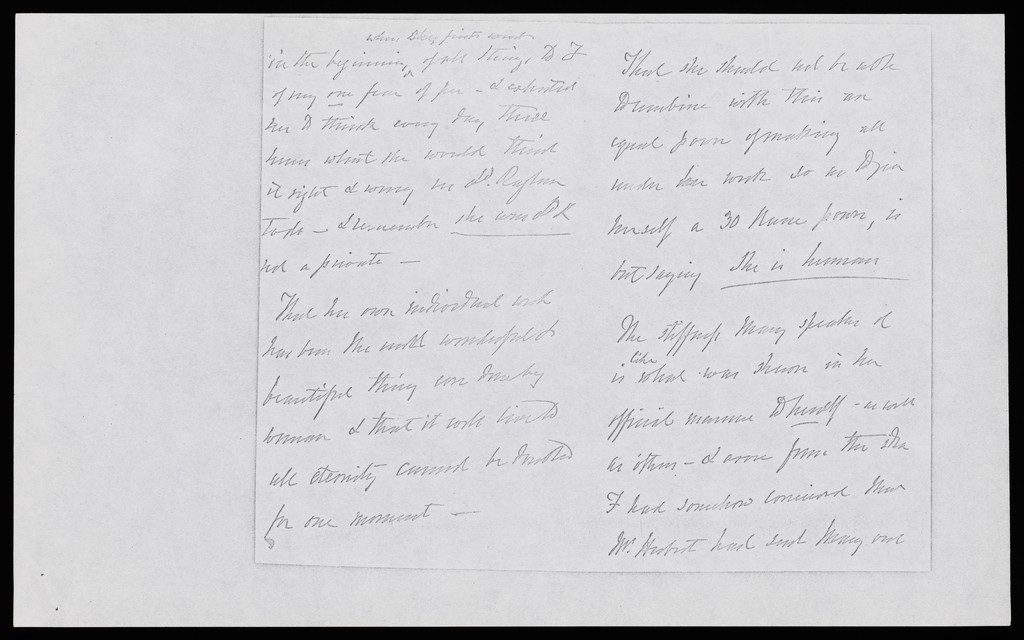 when they first went
in the beginning of all things to F
of my one fear of per - I exhorted
her to think every day three
hours what she would think
it right & wrong in Ld. Raglan
to do - & remember she was
not a private -
That her own individual work
has been the most wonderful &
beautiful thing ever done by
woman & that it will live to
all eternity cannot be doubted
for one moment -
That she should not be able
to combine with this an
equal power of making all
under her work so as to give
herself a 30 Horse power, is
but saying She is human
The stiffness Mary speaks of
is like what was shewn in her
official manner to herself - as well
as others - & arose from the idea
F had somehow conceived that
Mr. Herbert had sent Mary out